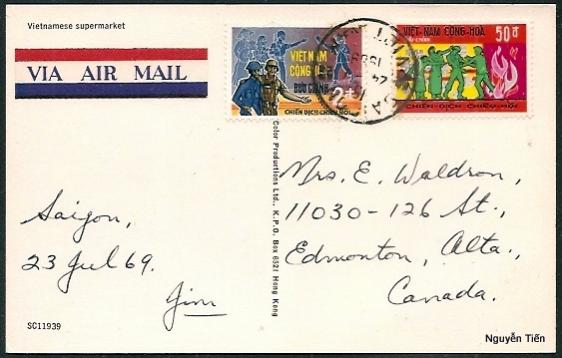 Vietnamese supermarket
VIA AIR MAIL
VIỆT NAM
CỘNG HÒA
BƯU CHÍNH
2đ
CHIẾN DỊCH CHIÊU HỒI
VIỆT-NAM CỘNG-HÒA
50đ
BƯU-CHÍNH
CHIẾN-DỊCH CHIÊU-HỒI
Saigon,
23 Jul 69.
Jim
Color Productions Ltd., K.P.O. Box 6521 Hong Kong
Mrs. E. Waldron,
11030-126 St.,
Edmonton, Alta.,
Canada.
SC11939
Nguyễn Tiến